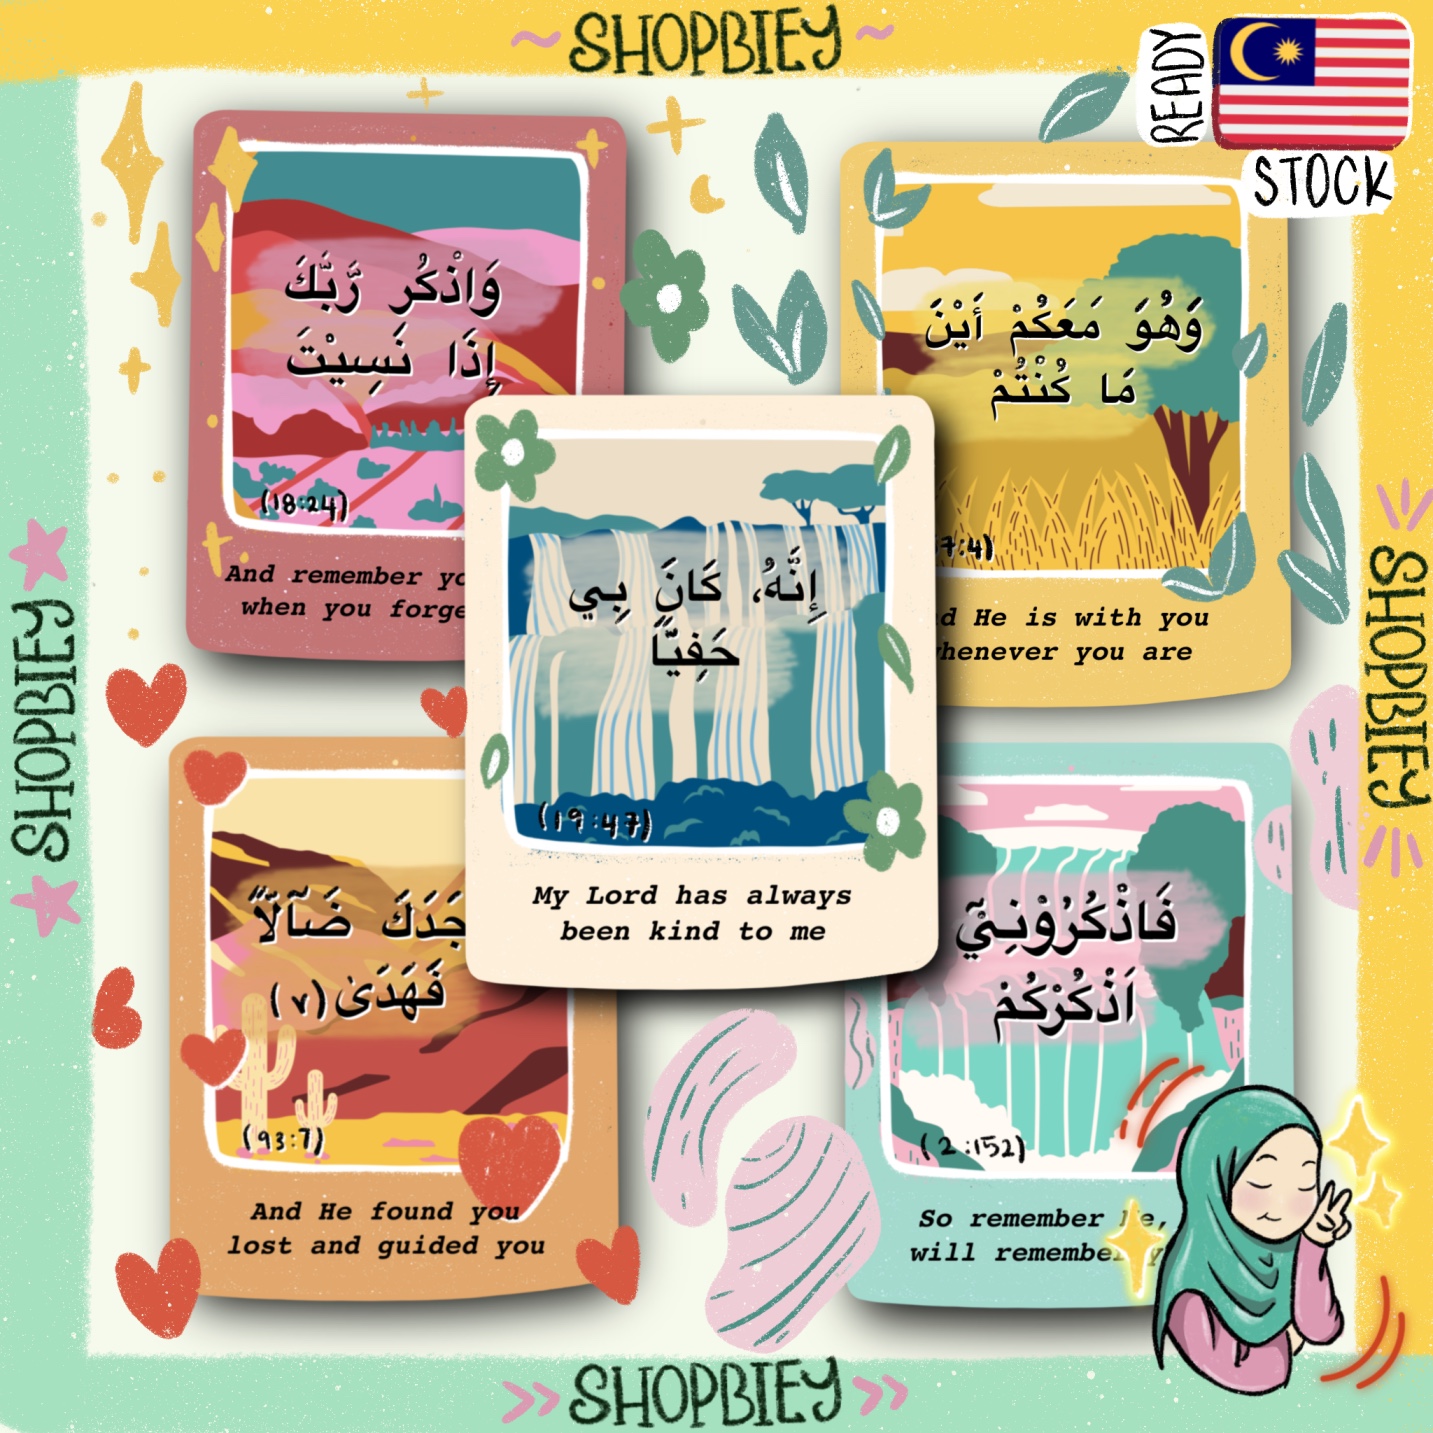 ~ SHOPBIEY ~
READY
STOCK
وَاذْكُر رَّبَّكَ
إِذَا نَسِيْتَ
(18:24)
And remember
when you
وَهُوَ مَعَكُمْ أَيْنَ
مَا كُنْتُمْ
7:4)
He is with you
whenever you are
إِنَّهُ، كَانَ بِي
حَفِيًّا
(19:47)
My Lord has always
been kind to me
جَدَكَ ضَآلًّا
فَهَدَىٰ (٧)
(93:7)
And He found you
lost and guided you
فَاذْكُرُوْنِيْٓ
اَذْكُرْكُمْ
(2:152)
So remember
will remember
SHOPBIEY
SHOPBIEY
>> SHOPBIEY >>